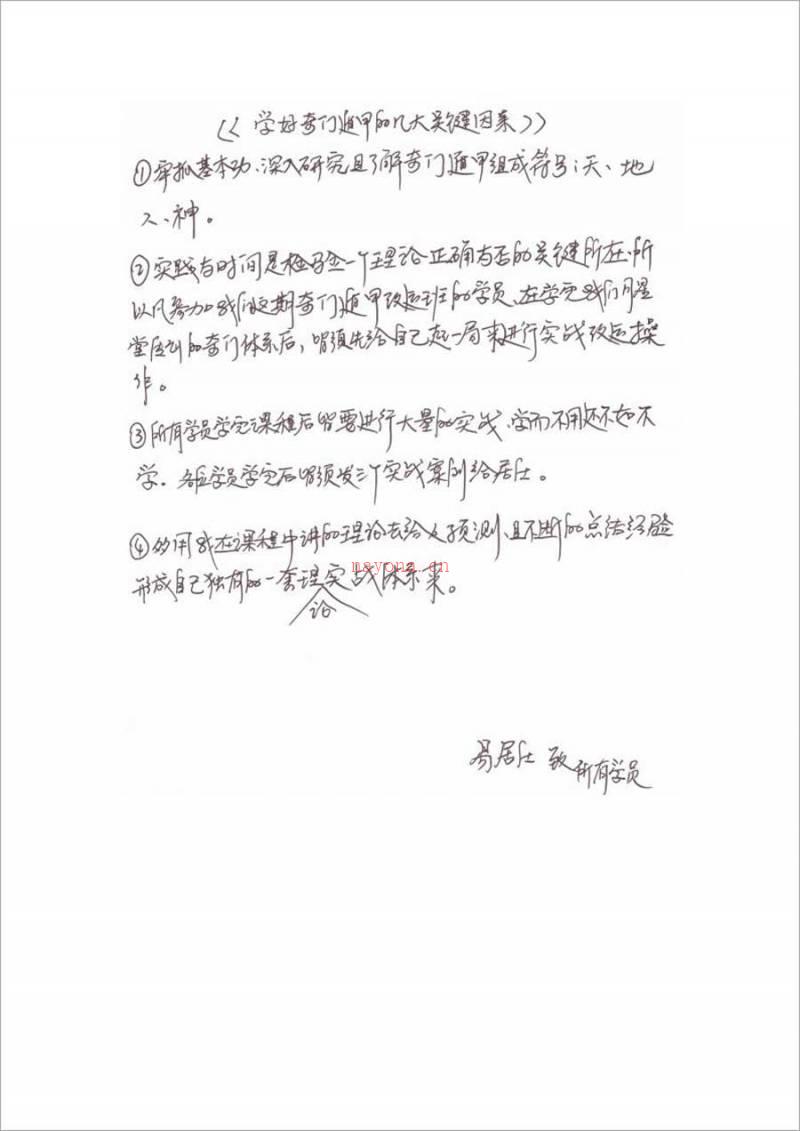 《学好奇门遁甲的几大关键因素》
①牢抓基本功、深入研究且了解奇门遁甲组成符号:天、地
人、神。
②实践与时间是检验一个理论正确与否的关键所在,所
以凡参加我们短期奇门遁甲改运班的学员,在学完我们
堂面训的奇门体系后,皆须先给自己起一局来进行实战改运操
作。
③所有学员学完课程后皆要进行大量的实战,学而不用还不如不
学.各位学员学完后皆须发三个实战案例给居士。
④多用我在课程中讲的理论去给人预测,且不断的总结经验
nayona.cn
形成自己独有的一套理论实战体系来。
易居士 致所有学员